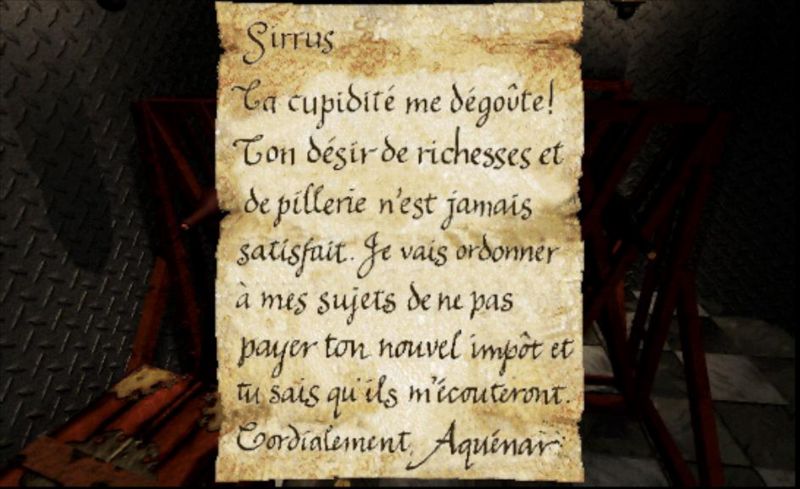 Sirrus
Ta cupidité me dégoûte!
Ton désir de richesses et
de pillerie n'est jamais
satisfait. Je vais ordonner
à mes sujets de ne pas
payer ton nouvel impôt et
tu sais qu'ils m'écouteront.
Cordialement, Aquénar